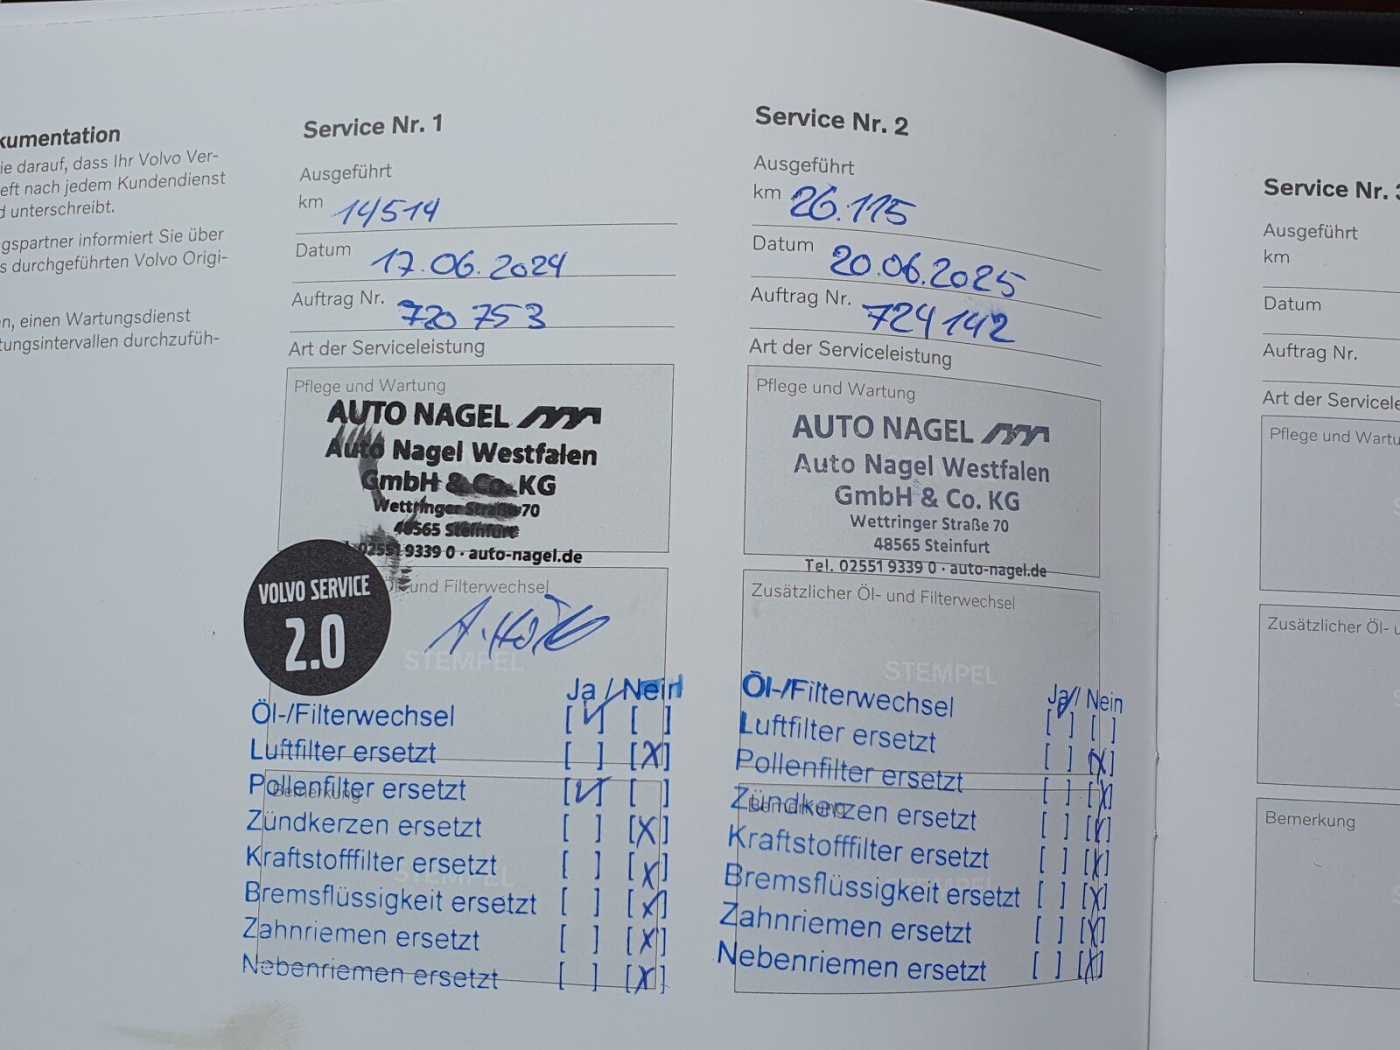 kumentation
ie darauf, dass Ihr Volvo Ver-
eft nach jedem Kundendienst
d unterschreibt.
gspartner informiert Sie über
s durchgeführten Volvo Origi-
n, einen Wartungsdienst
tungsintervallen durchzufüh-
Service Nr. 1
Ausgeführt
km 14514
Datum 17.06.2024
Auftrag Nr. 720 753
Art der Serviceleistung
Pflege und Wartung
AUTO NAGEL
Auto Nagel Westfalen
GmbH & Co. KG
Wettringer Straße 70
48565 Steinfurt
02551 9339 0 · auto-nagel.de
VOLVO SERVICE
2.0
und Filterwechsel
STEMPEL
Ja / Nein
Öl-/Filterwechsel [✓] [ ]
Luftfilter ersetzt [ ] [X]
Pollenfilter ersetzt [✓] [ ]
Bemerkung
Zündkerzen ersetzt [ ] [X]
Kraftstofffilter ersetzt [ ] [X]
STEMPEL
Bremsflüssigkeit ersetzt [ ] [X]
Zahnriemen ersetzt [ ] [X]
Nebenriemen ersetzt [ ] [X]
Service Nr. 2
Ausgeführt
km 26.115
Datum 20.06.2025
Auftrag Nr. 724142
Art der Serviceleistung
Pflege und Wartung
AUTO NAGEL
Auto Nagel Westfalen
GmbH & Co. KG
Wettringer Straße 70
48565 Steinfurt
Tel. 02551 9339 0 · auto-nagel.de
Zusätzlicher Öl- und Filterwechsel
STEMPEL
Ja / Nein
Öl-/Filterwechsel [✓] [ ]
Luftfilter ersetzt [ ] [X]
Pollenfilter ersetzt [ ] [X]
Bemerkung
Zündkerzen ersetzt [ ] [X]
Kraftstofffilter ersetzt [ ] [X]
STEMPEL
Bremsflüssigkeit ersetzt [ ] [X]
Zahnriemen ersetzt [ ] [X]
Nebenriemen ersetzt [ ] [X]
Service Nr. 3
Ausgeführt
km
Datum
Auftrag Nr.
Art der Servicele
Pflege und Wartu
Zusätzlicher Öl- u
Bemerkung